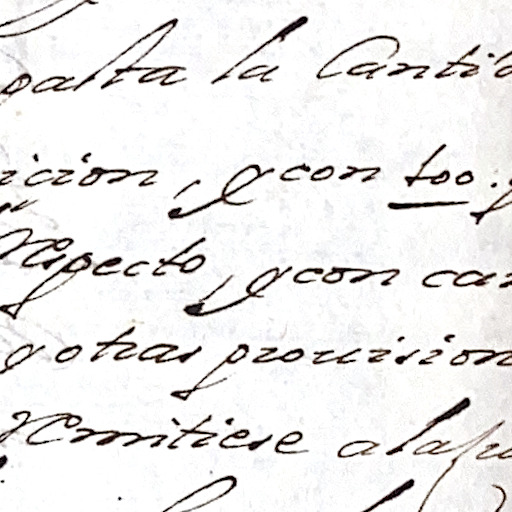 gasta la Cantid
icion, y con too.
Respecto, y con car
y otras provision
Remitiese a la